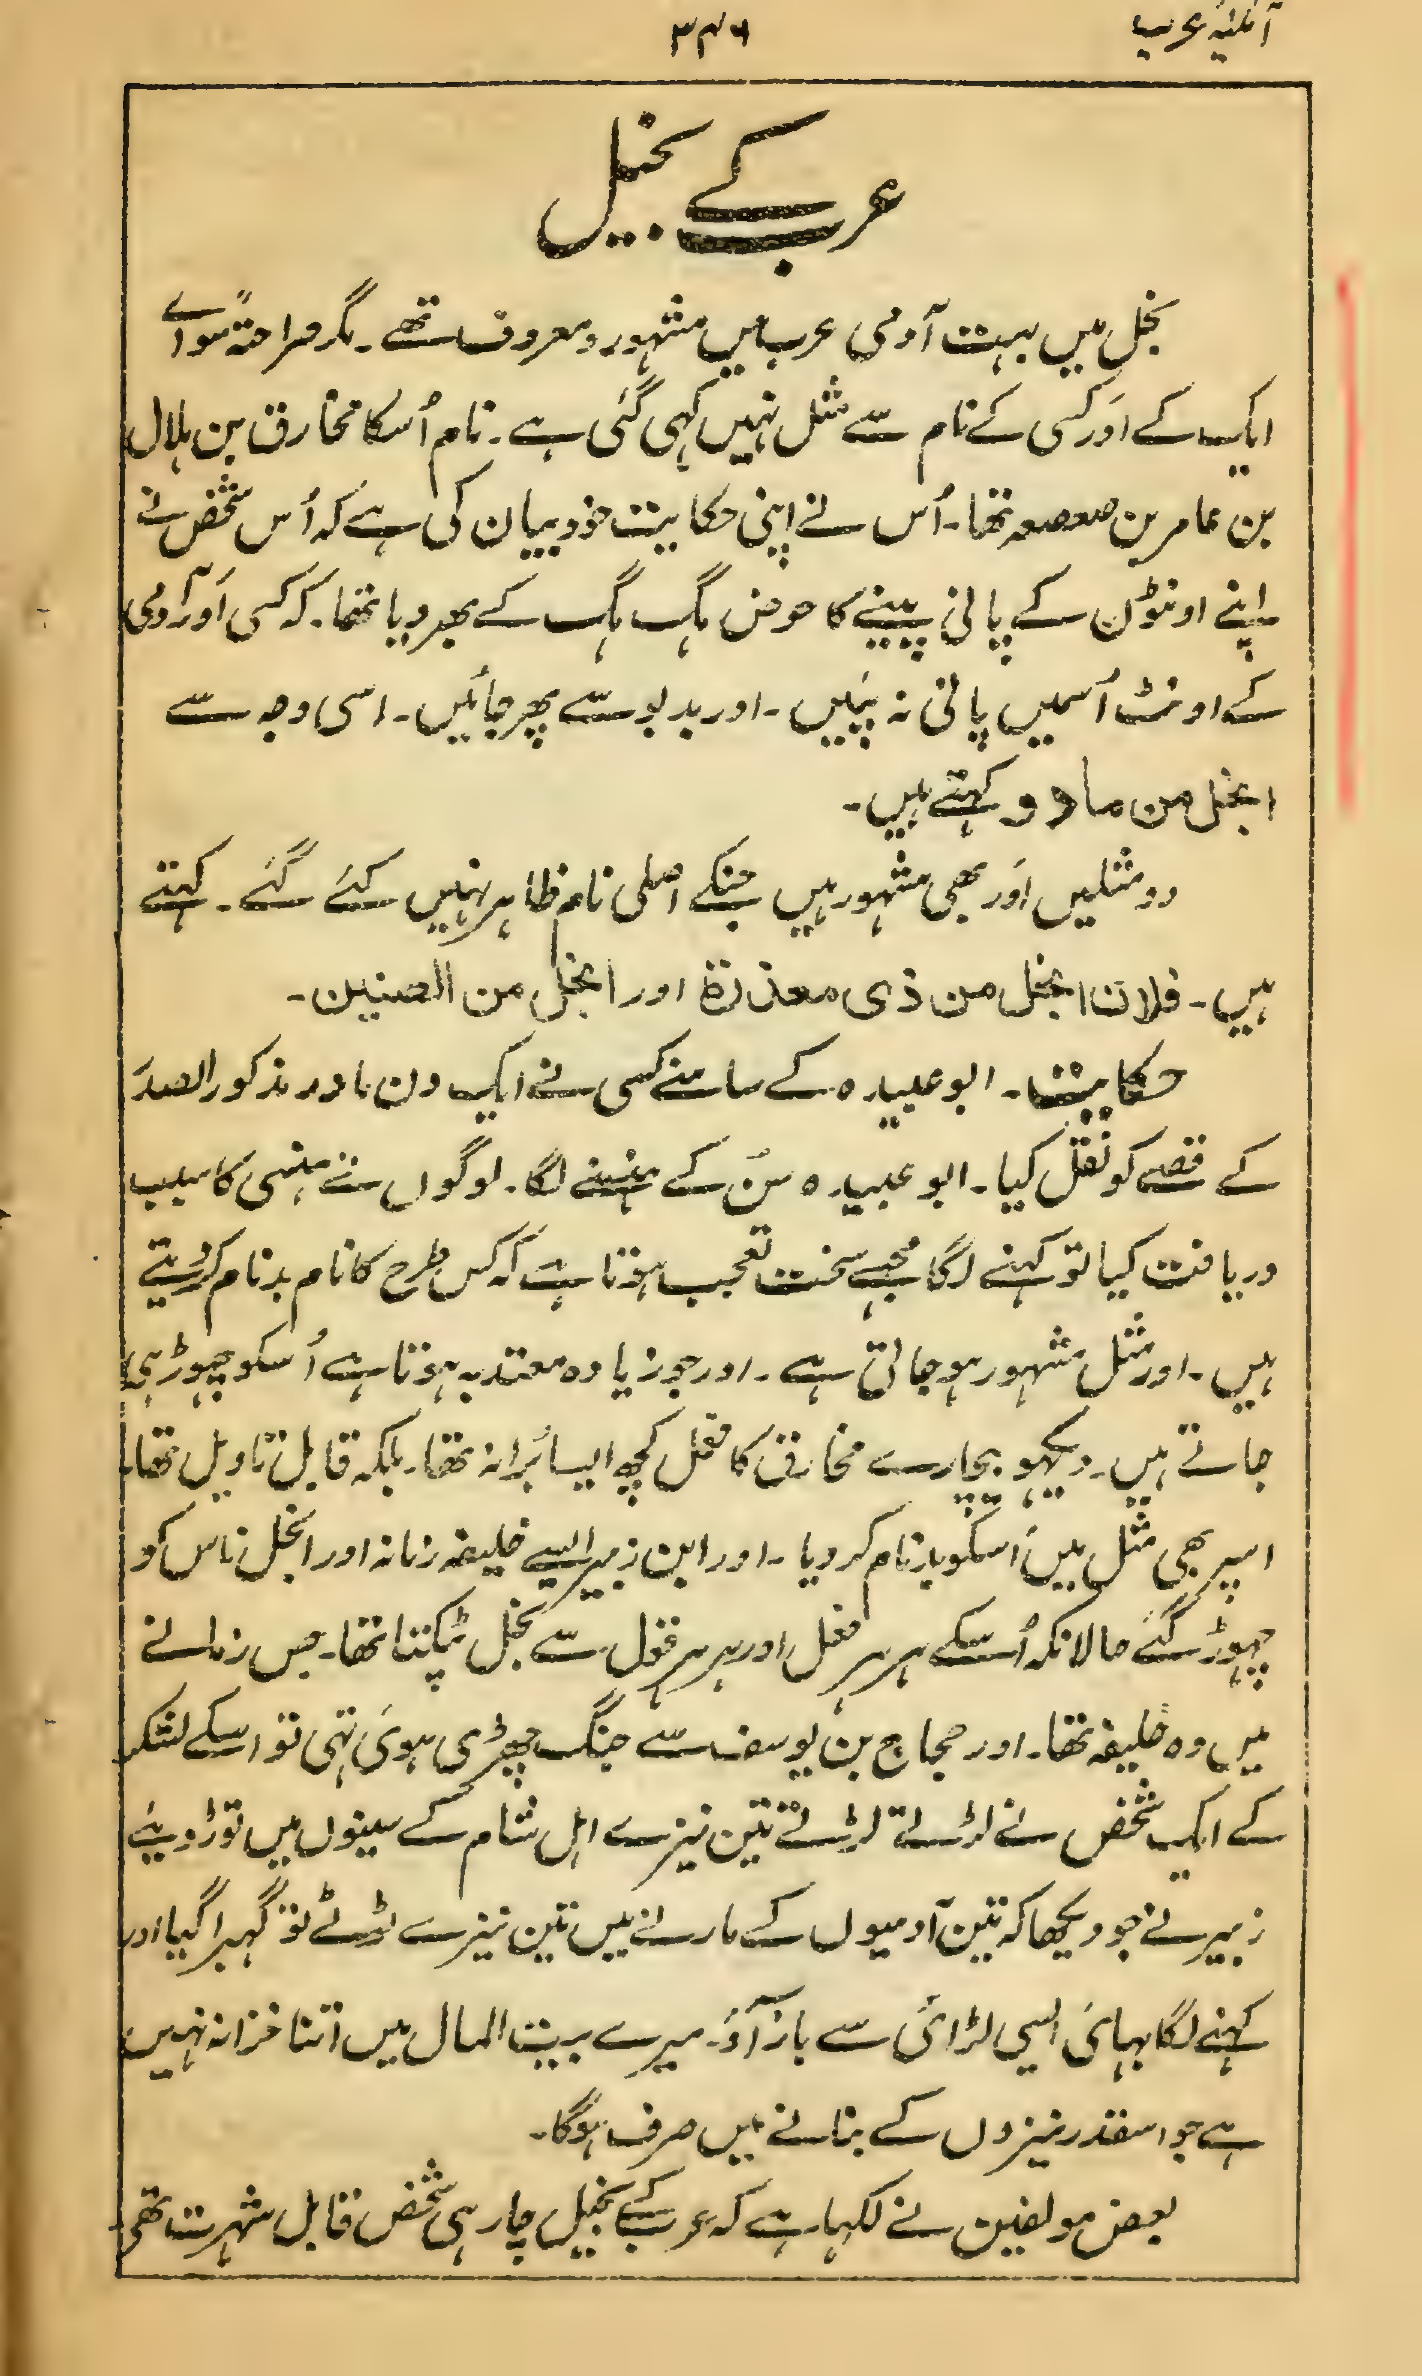 آئینہ عرب
۳۴۶
عرب کے بخیل
بخل میں بہت آدمی عرب میں مشہور و معروف تھے۔ مگر صراحتہً سواے
ایک کے اَور کسی کے نام سے مثل نہیں کہی گئی ہے۔ نام اُسکا مخارق بن ہلال
بن عامر بن صعصعہ تھا۔ اُس نے اپنی حکایت خود بیان کی ہے کہ اُس شخص نے
اپنے اونٹوں کے پانی پینے کا حوض ہگ ہگ کے بھر دیا تھا۔ کہ کسی اَور آدمی
کے اونٹ اُسمیں پانی نہ پئیں۔ اور بدبو سے پھر جائیں۔ اسی وجہ سے
ابخل من مادر کہتے ہیں۔
دو مثلیں اَور بھی مشہور ہیں جنکے اصلی نام ظاہر نہیں کئے گئے۔ کہتے
ہیں۔ فلان ابخل من ذی معذرۃ اور ابخل من الضنین۔
حکایت۔ ابو عبیدہ کے سامنے کسی نے ایک دن مادر مذکور الصدر
کے قصے کو نقل کیا۔ ابو عبیدہ سُن کے ہنسنے لگا۔ لوگوں نے ہنسی کا سبب
دریافت کیا تو کہنے لگا مجہے سخت تعجب ہوتا ہے کہ کس طرح کا نام بدنام کر دیتے
ہیں۔ اور مثل مشہور ہو جاتی ہے۔ اور جو زیادہ معتدبہ ہوتا ہے اُسکو چہوڑ ہی
جاتے ہیں۔ دیکہو بیچارے مخارق کا فعل کچھ ایسا بُرا نہ تھا۔ بلکہ قابل تاویل تھا۔
اسپر بھی مثل میں اُسکو بدنام کر دیا۔ اور ابن زبیر ایسے خلیفہ زمانہ اور ابخل ناس کو
چہوڑ گئے حالانکہ اُسکے ہر ہر فعل اور ہر ہر قول سے بخل ٹپکتا تھا۔ جس زمانے
میں وہ خلیفہ تھا۔ اور حجاج بن یوسف سے جنگ چھڑی ہوئی تہی تو اسکے لشکر
کے ایک شخص نے لڑتے لڑتے تین نیزے اہل شام کے سینوں میں توڑ دیئے
زبیر نے جو دیکھا کہ تین آدمیوں کے مارنے میں تین نیزے ٹوٹے تو گہبرا گیا اور
کہنے لگا بہائی ایسی لڑائی سے باز آؤ۔ میرے بیت المال میں اتنا خزانہ نہیں
ہے جو اسقدر نیزوں کے بنانے میں صرف ہوگا۔
بعض مولفین نے لکہا ہے کہ عرب کے بخیل چار ہی شخص قابل شہرت تھے